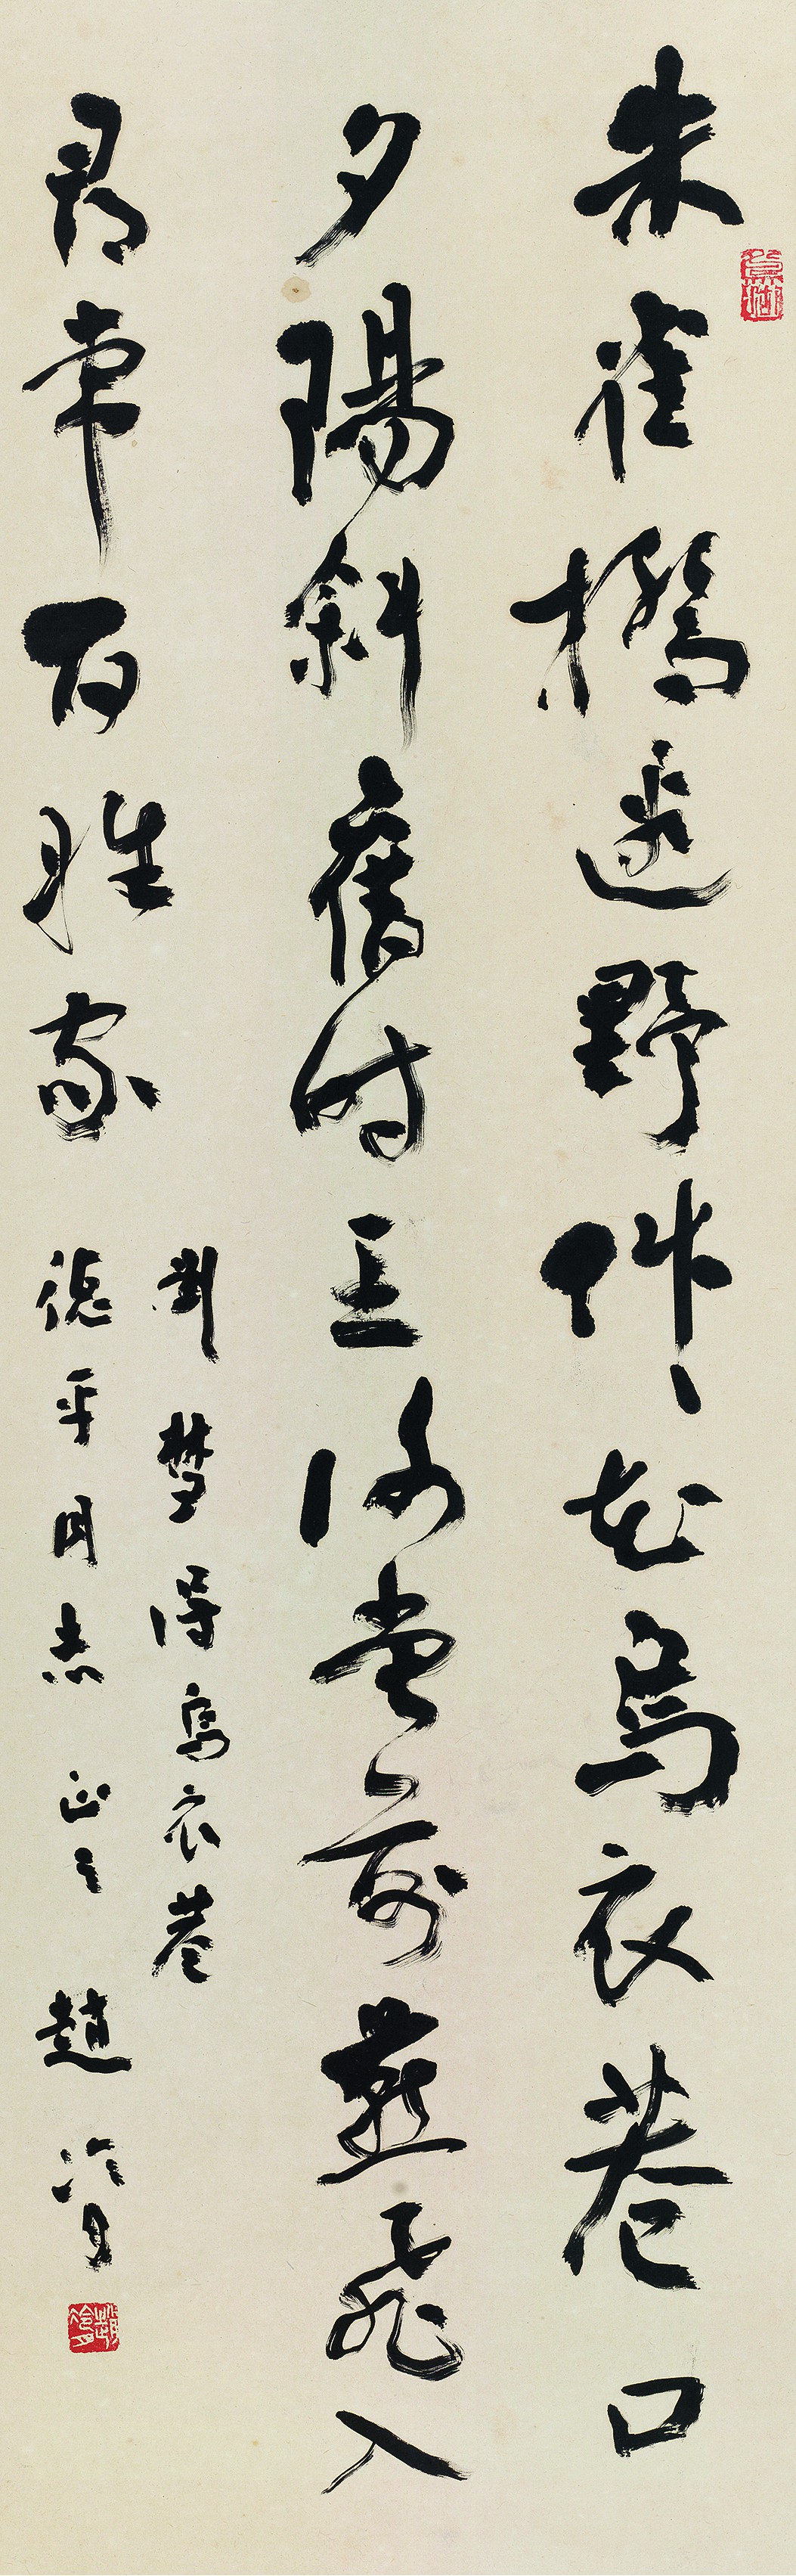 朱雀橋邊野艸花烏衣巷口
夕陽斜舊時王謝堂前燕飛入
尋常百姓家
劉夢得烏衣巷
德平同志正之 趙冷月
趙冷月